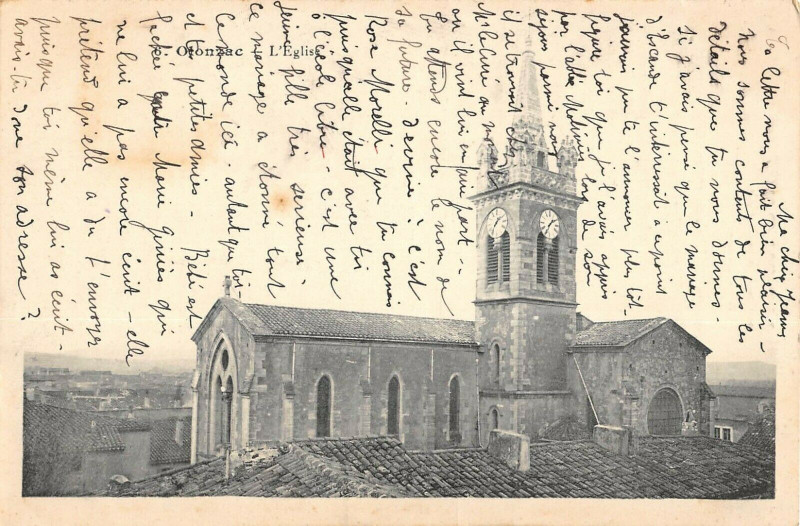 Olonzac - L'Église
Ma chère Jeanne
Ta lettre nous a fait bien plaisir -
Nous sommes contents de tous les
détails que tu nous donnes -
Si j'avais pensé que le mariage
d'Escande t'intéressait à ce point
j'aurais pu te l'annoncer plus tôt -
figure toi que je l'avais appris
par l'abbé lors de son
séjour parmi nous
il se trouvait chez
M. le curé au moment
où il vint lui en faire part -
Tu attends encore le nom de
sa future - devine ? c'est
Rose Morelli que tu connais
puisqu'elle était avec toi
à l'école libre - c'est une
jeune fille très sérieuse -
ce mariage a étonné tout
le monde ici autant que toi
et tes petites amies - Bébé est
fâchée Marie qui
ne lui a pas encore écrit - elle
prétend qu'elle a dû t'envoyer
puisque toi même lui as écrit -
avais-tu donc son adresse ?